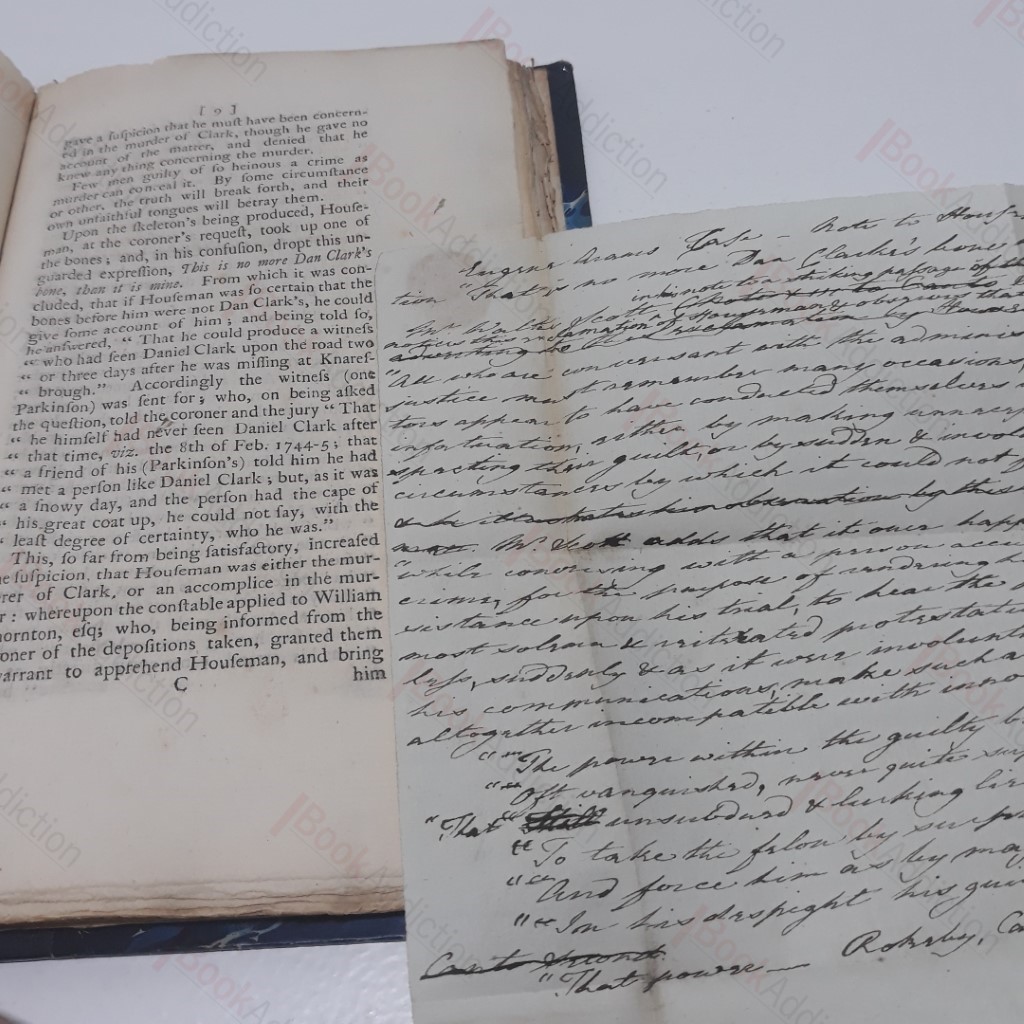 [ 9 ]
gave a ſuſpicion that he muſt have been concern-
ed in the murder of Clark, though he gave no
account of the matter, and denied that he
knew any thing concerning the murder.
Few men guilty of ſo heinous a crime as
murder can conceal it. By ſome circumſtance
or other, the truth will break forth, and their
own unfaithful tongues will betray them.
Upon the ſkeleton's being produced, Houſe-
man, at the coroner's requeſt, took up one of
the bones; and, in his confuſion, dropt this un-
guarded expreſſion, This is no more Dan Clark's
bone, than it is mine. From which it was con-
cluded, that if Houſeman was ſo certain that the
bones before him were not Dan Clark's, he could
give ſome account of him; and being told ſo,
he anſwered, “ That he could produce a witneſs
“ who had ſeen Daniel Clark upon the road two
“ or three days after he was miſſing at Knareſ-
“ brough.” Accordingly the witneſs (one
Parkinſon) was ſent for; who, on being aſked
the queſtion, told the coroner and the jury “ That
“ he himſelf had never ſeen Daniel Clark after
“ that time, viz. the 8th of Feb. 1744-5; that
“ a friend of his (Parkinſon's) told him he had
“ met a perſon like Daniel Clark; but, as it was
“ a ſnowy day, and the perſon had the cape of
“ his great coat up, he could not ſay, with the
“ leaſt degree of certainty, who he was.”
This, ſo far from being ſatisfactory, increaſed
he ſuſpicion, that Houſeman was either the mur-
rer of Clark, or an accomplice in the mur-
r: whereupon the conſtable applied to William
hornton, eſq; who, being informed from the
oner of the depoſitions taken, granted them
arrant to apprehend Houſeman, and bring
C him
Eugene Arams Case - Note to Housem
tion "That is no more Dan Clarke's bone
in his note to a striking passage of the
Walter Scott
notices this exclamation of Houseman & observes that
"All who are conversant with the adminis
justice must remember many occasions,
tors appear to have conducted themselves
information, either by making unnece
specting their guilt, or by sudden & involu
circumstances by which it could not f
Mr Scott adds that it once happ
"while conversing with a person accu
crime, for the purpose of rendering h
sistance upon his trial, to hear the
most solemn & reiterated protestati
less, suddenly & as it were involunt
his communications, make such a
altogether incompatible with inno
""The power within the guilty b
""Oft vanquished, never quite supp
"That" unsubdued & lurking lies
"" To take the felon by surpri
"" And force him as by mag
"" In his despight his gui
"That power — Rokeby, Ca
BookAddiction